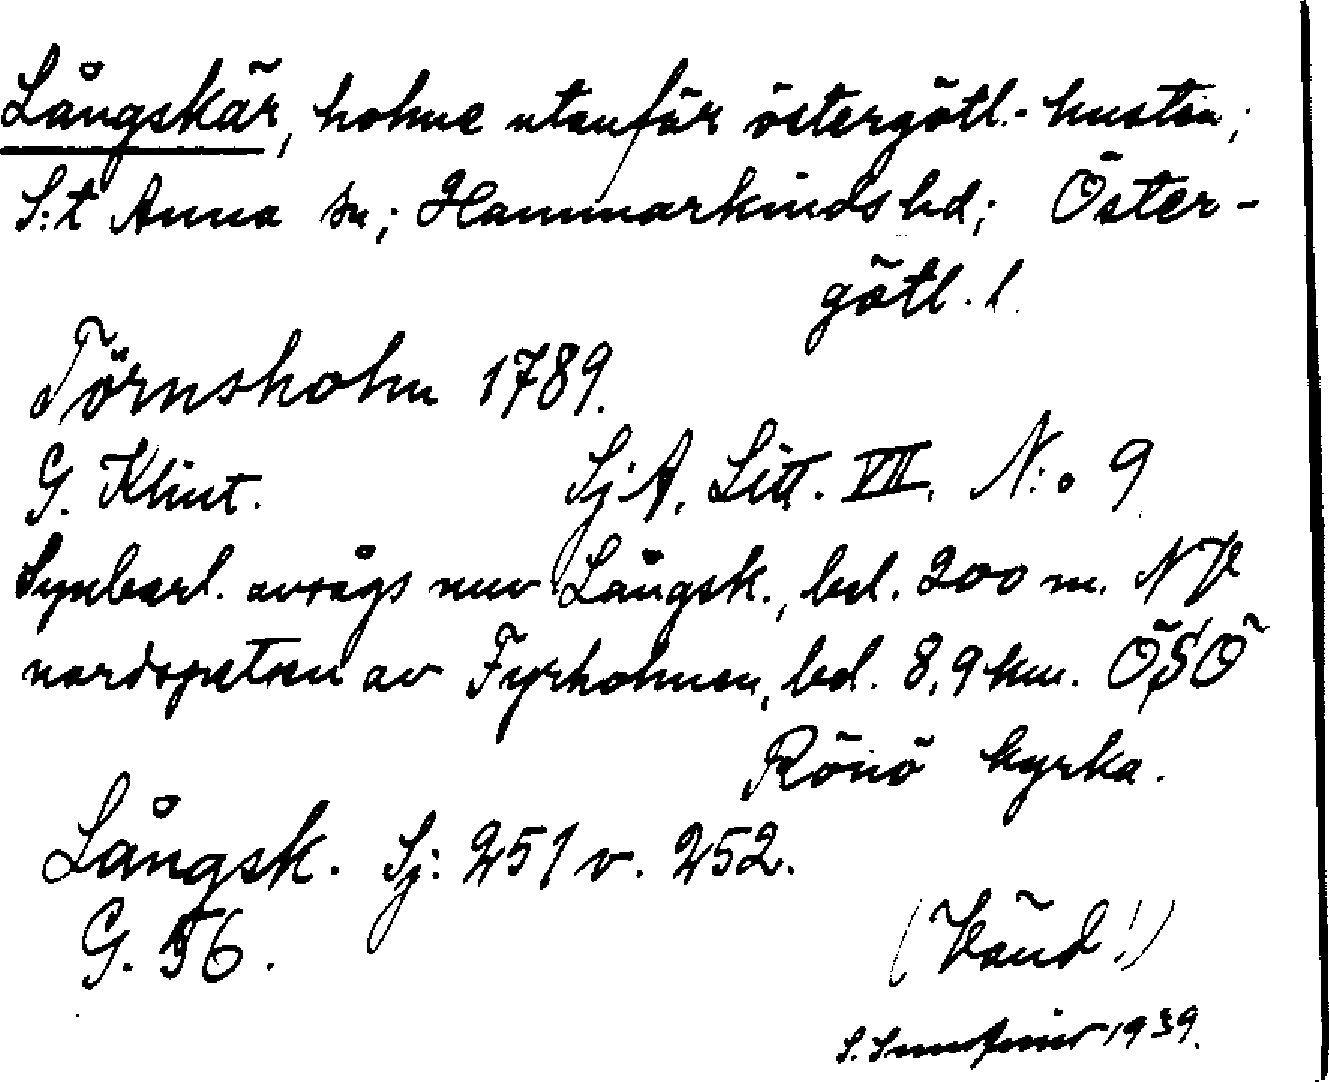 Långskär, holme utanför östergötl.-kusten;
S:t Anna sn; Hammarkinds hd; Öster-
götl. l.
Törnsholm 1789.
G. Klint. Sj.A. Litt. VII. N:o 9
Synbarl. avsågs nuv Långsk., bel. 200 m. NV
nordspetsen av Fyrholmen, bel. 8,9 km. ÖSÖ
Rönö kyrka.
Långsk. Sj: 251 v. 252.
G. 56.
(Vänd!)
S. 1939.